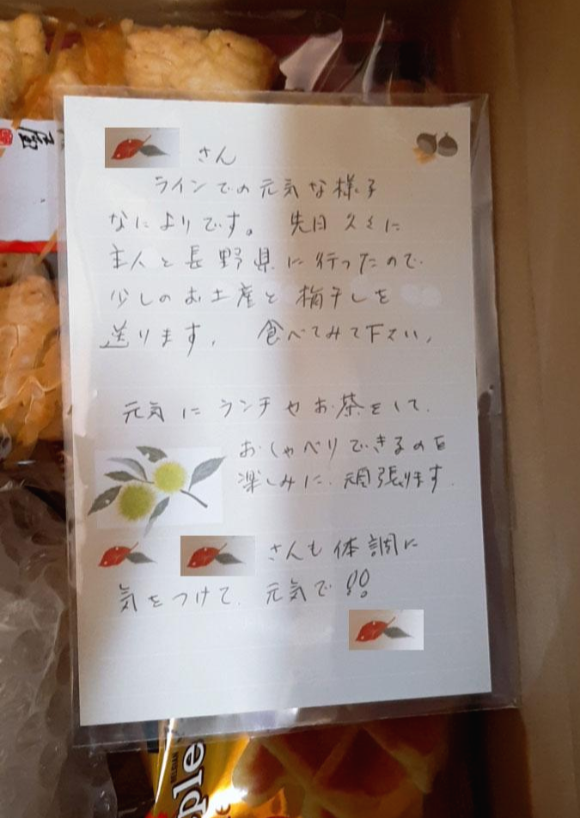 屋
さん
ラインでの元気な様子
なによりです。 先日 久々に
主人と長野県に行ったので
少しのお土産と梅干しを
送ります。 食べてみて下さい。
元気にランチやお茶をして、
おしゃべりできるのを
楽しみに、頑張ります。
さんも体調に
気をつけて、元気で!!
ple